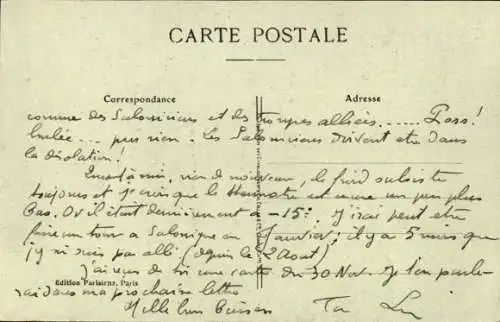 CARTE POSTALE
Correspondance
Adresse
comme des Saloniciens et des troupes alliées..... Pass!
brûlée... puis rien. Les Saloniciens doivent être dans
la désolation!
rien de nouveau, le froid subsiste
toujours et je crois que le thermomètre est encore un peu plus
bas. Où il était dernièrement à -15°. J'irai peut être
faire un tour à Salonique en Janvier; il y a 5 mois que
j'y ni suis pas allé! (depuis le 2 Août)
J'ai reçu de toi une carte du 30 Nov. Je t'en parle-
rai dans ma prochaine lettre
Mille bons baisers
Ton
Edition Parisienne, Paris